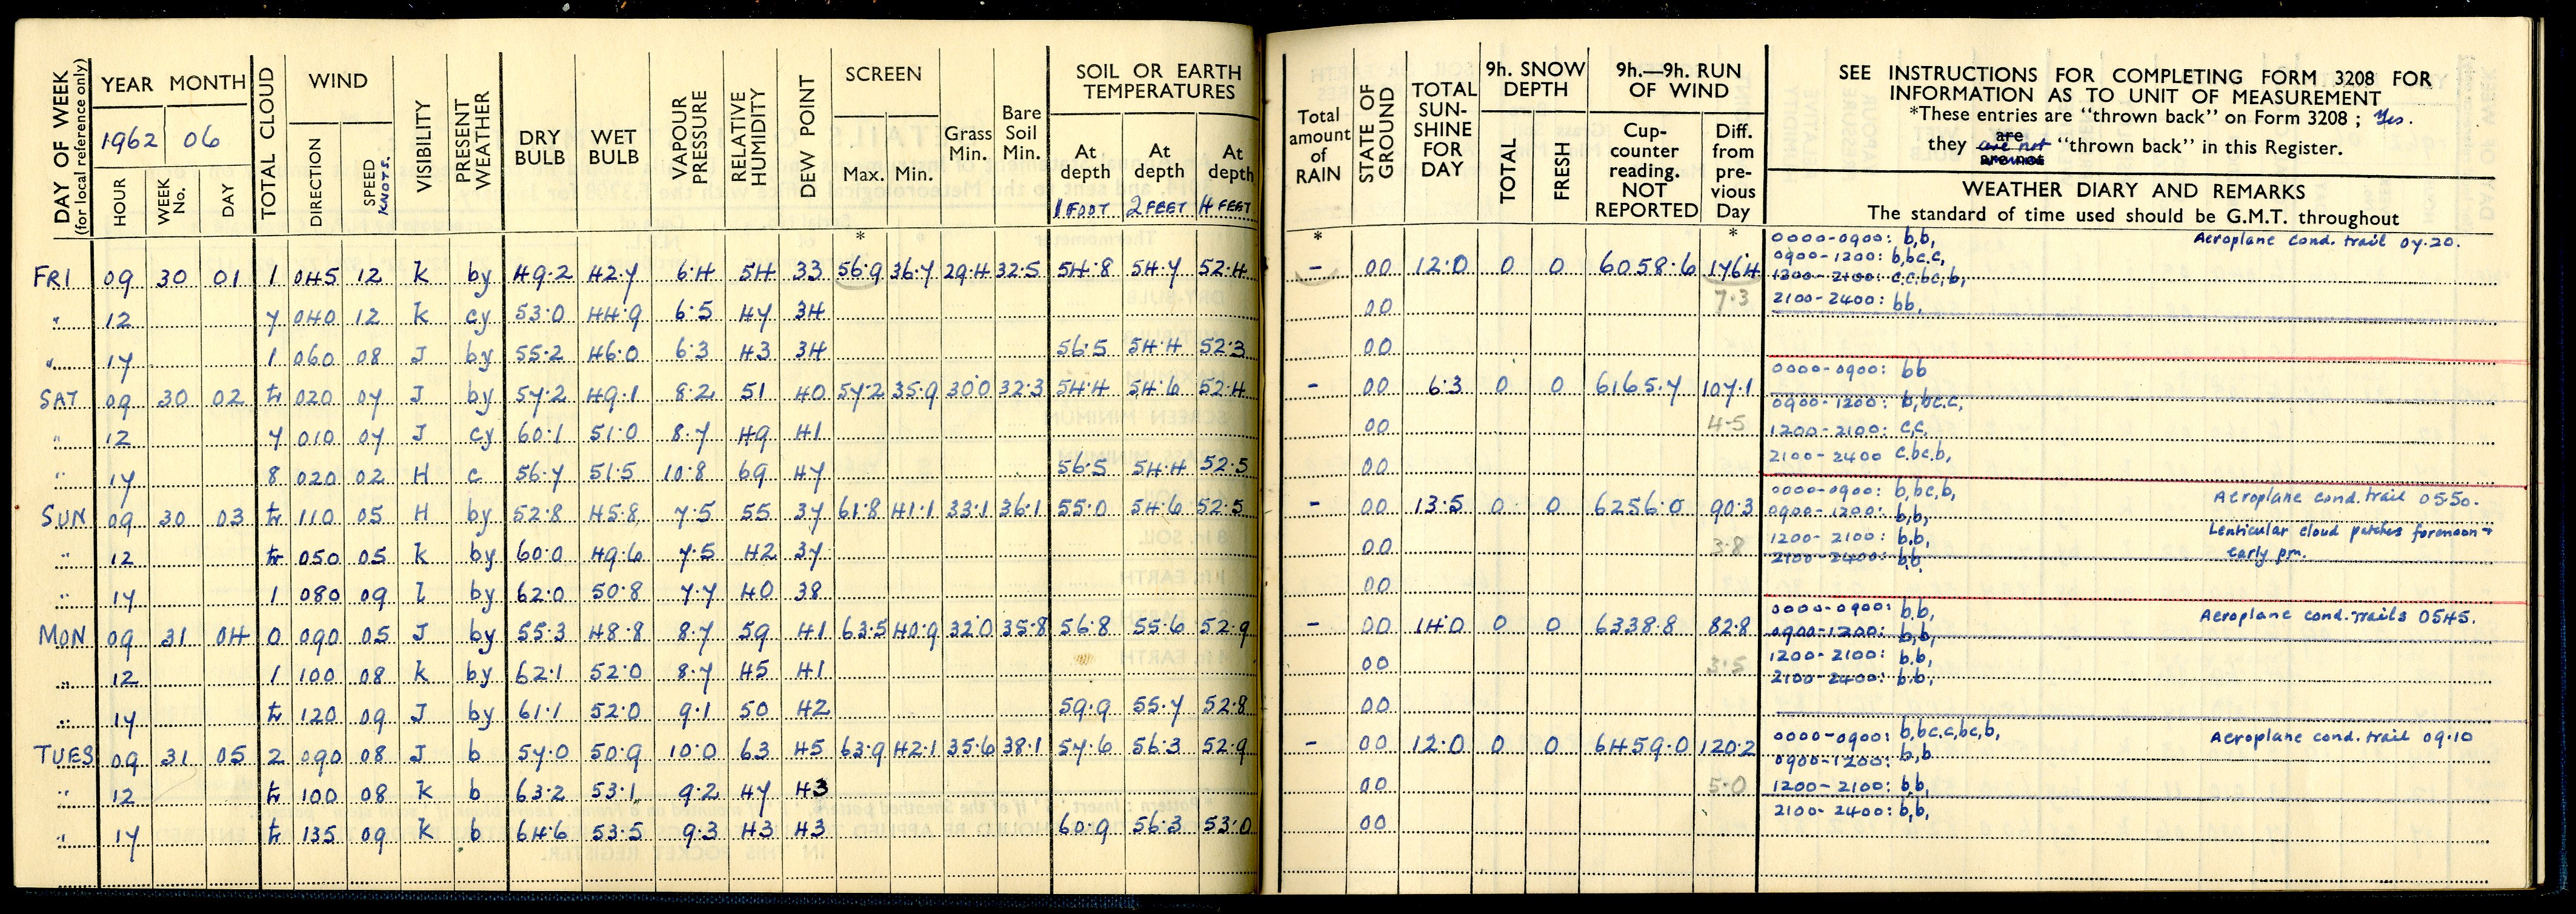 DAY OF WEEK (for local reference only) YEAR MONTH TOTAL CLOUD WIND VISIBILITY PRESENT WEATHER DRY BULB WET BULB VAPOUR PRESSURE RELATIVE HUMIDITY DEW POINT SCREEN Grass Min. Bare Soil Min. SOIL OR EARTH TEMPERATURES
1962 06
HOUR WEEK No. DAY DIRECTION SPEED KNOTS. Max. Min. At depth At depth At depth
1 FOOT 2 FEET 4 FEET
*
FRI 09 30 01 1 045 12 k by 49.2 42.7 6.4 54 33 56.9 36.7 29.4 32.5 54.8 54.7 52.4
" 12 7 040 12 k cy 53.0 44.9 6.5 47 34
" 17 1 060 08 J by 55.2 46.0 6.3 43 34 56.5 54.4 52.3
SAT 09 30 02 tr 020 07 J by 57.2 49.1 8.2 51 40 57.2 35.9 30.0 32.3 54.4 54.6 52.4
" 12 7 010 07 J cy 60.1 51.0 8.7 49 41
" 17 8 020 02 H c 56.7 51.5 10.8 69 47 56.5 54.4 52.5
SUN 09 30 03 tr 110 05 H by 52.8 45.8 7.5 55 37 61.8 41.1 33.1 36.1 55.0 54.6 52.5
" 12 tr 050 05 k by 60.0 49.6 7.5 42 37
" 17 1 080 09 l by 62.0 50.8 7.7 40 38
MON 09 31 04 0 090 05 J by 55.3 48.8 8.7 59 41 63.5 40.9 32.0 35.8 56.8 55.6 52.9
" 12 1 100 08 k by 62.1 52.0 8.7 45 41
" 17 tr 120 09 J by 61.1 52.0 9.1 50 42 59.9 55.7 52.8
TUES 09 31 05 2 090 08 J b 57.0 50.9 10.0 63 45 63.9 42.1 35.6 38.1 57.6 56.3 52.9
" 12 tr 100 08 k b 63.2 53.1 9.2 47 43
" 17 tr 135 09 k b 64.6 53.5 9.3 43 43 60.9 56.3 53.0
Total amount of RAIN STATE OF GROUND TOTAL SUN-SHINE FOR DAY 9h. SNOW DEPTH 9h.—9h. RUN OF WIND
TOTAL FRESH Cup-counter reading. NOT REPORTED Diff. from pre-vious Day
* *
SEE INSTRUCTIONS FOR COMPLETING FORM 3208 FOR
INFORMATION AS TO UNIT OF MEASUREMENT
*These entries are "thrown back" on Form 3208 ; Yes.
are
they are not "thrown back" in this Register.
are not
WEATHER DIARY AND REMARKS
The standard of time used should be G.M.T. throughout
– 00 12.0 0 0 6058.6 176.4
00 7.3
00
0000-0900: b,b, Aeroplane cond. trail 07.20.
0900-1200: b,bc.c,
1200-2100: c.c.bc,b,
2100-2400: bb,
– 00 6.3 0 0 6165.7 107.1
00 4.5
00
0000-0900: bb
0900-1200: b,bc.c,
1200-2100: c,c,
2100-2400 c.bc,b,
– 00 13.5 0 0 6256.0 90.3
00 3.8
00
0000-0900: b,bc,b, Aeroplane cond. trail 0550.
0900-1200: b,b,
Lenticular cloud patches forenoon +
1200-2100: b.b,
early pm.
2100-2400: b.b.
– 00 14.0 0 0 6338.8 82.8
00 3.5
00
0000-0900: b.b, Aeroplane cond. trails 0545.
0900-1200: b,b,
1200-2100: b.b,
2100-2400: b.b,
– 00 12.0 0 0 6459.0 120.2
00 5.0
00
0000-0900: b,bc.c,bc,b, Aeroplane cond. trail 09.10
0900-1200: b,b
1200-2100: b,b,
2100-2400: b,b,